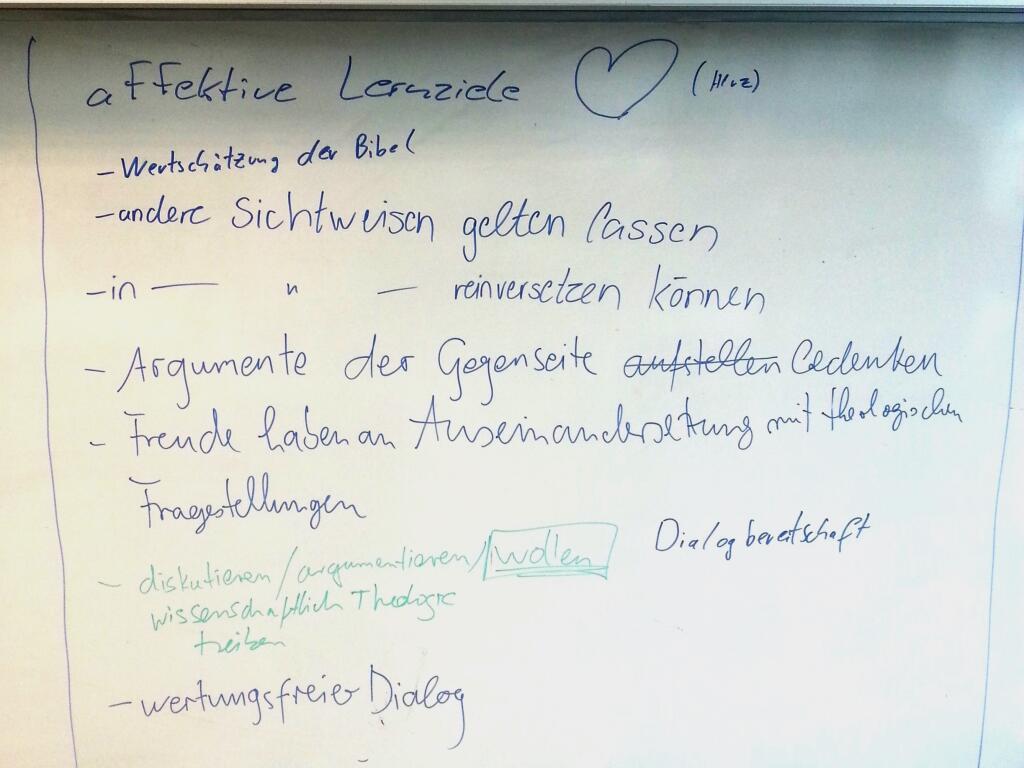 affektive Lernziele (Herz)
- Wertschätzung der Bibel
- andere Sichtweisen gelten lassen
- in — " — reinversetzen können
- Argumente der Gegenseite aufstellen bedenken
- Freude haben an Auseinandersetzung mit theologischen
Fragestellungen
- diskutieren/argumentieren/wollen
Dialogbereitschaft
wissenschaftlich Theologie
treiben
- wertungsfreier Dialog